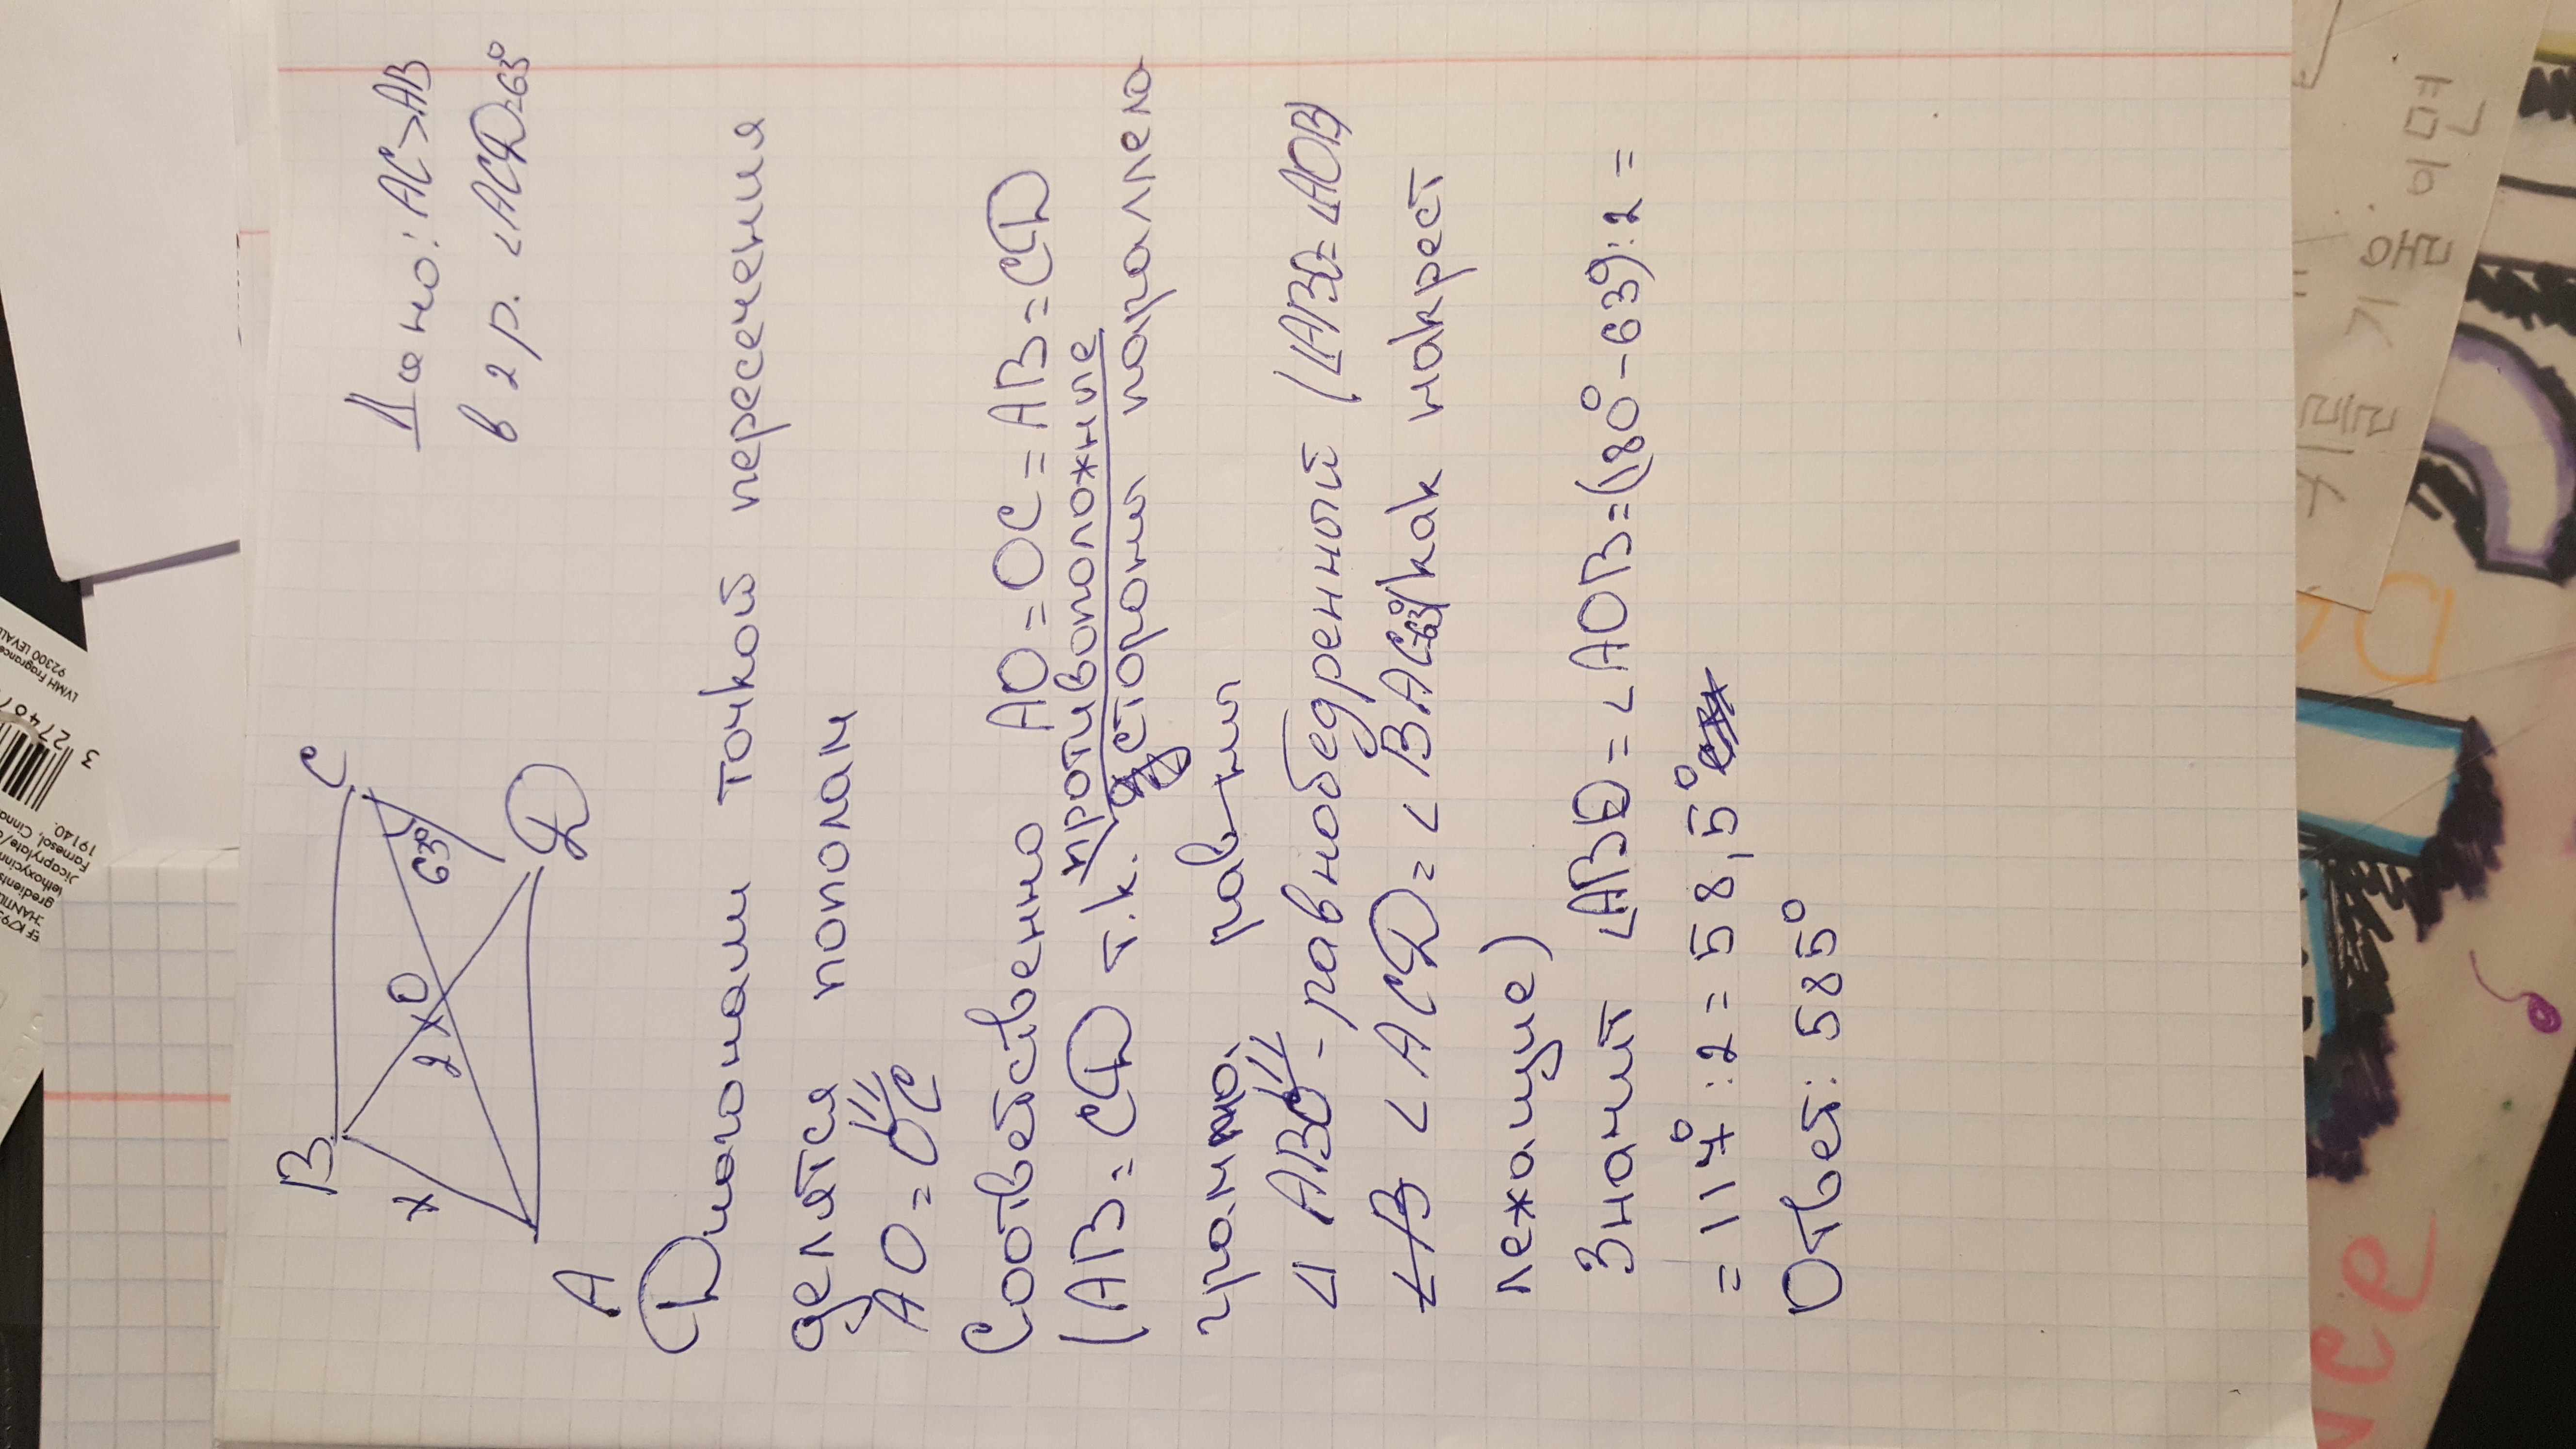 EF K79
CHANTIL
gredients
lethoxycinn
Dicaprylate/
Farnesol, Cinna
19140.
3 27460
LVMH Fragrance
92300 LEVALL
B C
x 2x O 63°
A D
Дано: AC>AB
в 2 р. ∠ACD=63°
Диагонали точкой пересечения
делятся пополам
AO=OC
Соответственно AO=OC=AB=CD
(AB=CD т.к. противоположные
стороны параллело
грамма равны
∆ ABO - равнобедренный (∠ABO=∠AOB)
∠B ∠ACD=∠BAC=63°(как накрест
лежащие)
Значит ∠ABO=∠AOB=(180°-63°):2=
=117°:2=58,5°
Ответ: 585°
nce
기울이면